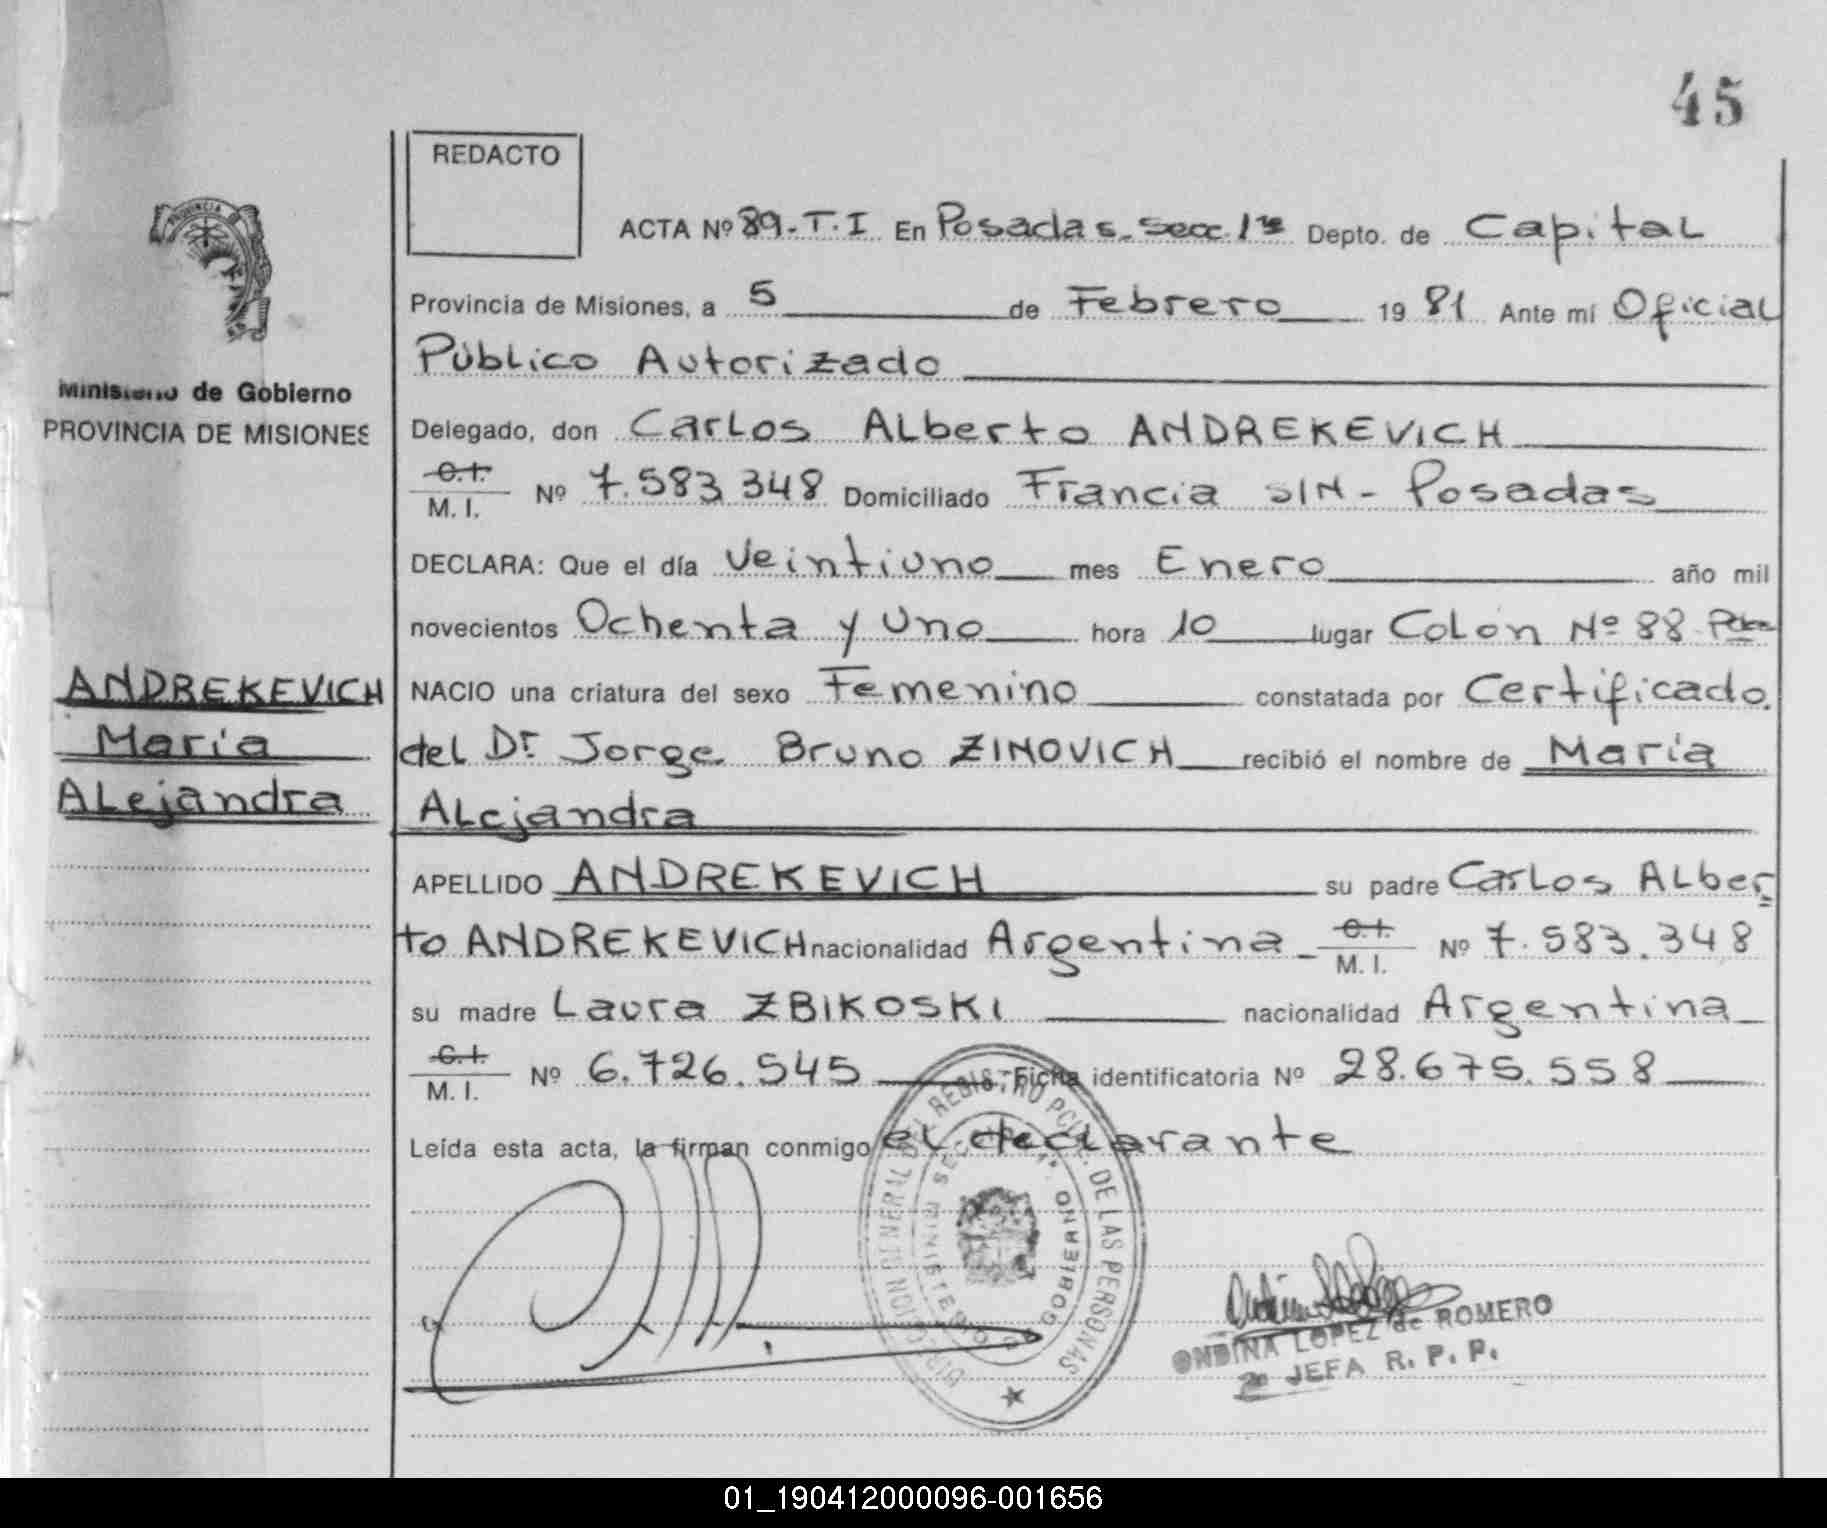 45
REDACTO
ACTA Nº 89-T.I En Posadas-secc. 1ra Depto. de Capital
Provincia de Misiones, a 5 de Febrero 1981 Ante mí Oficial
Público Autorizado
Ministerio de Gobierno
PROVINCIA DE MISIONES
Delegado, don Carlos Alberto ANDREKEVICH
C.I. M.I. Nº 7.583.348 Domiciliado Francia S/N - Posadas
DECLARA: Que el día Veintiuno mes Enero año mil
novecientos Ochenta y Uno hora 10 lugar Colón Nº 88 - Pdas
ANDREKEVICH
María
Alejandra
NACIO una criatura del sexo Femenino constatada por Certificado
del Dr. Jorge Bruno ZINOVICH recibió el nombre de María
Alejandra
APELLIDO ANDREKEVICH su padre Carlos Alber
to ANDREKEVICH nacionalidad Argentina C.I. M.I. Nº 7.583.348
su madre Laura ZBIKOSKI nacionalidad Argentina
C.I. M.I. Nº 6.726.545 Ficha identificatoria Nº 28.675.558
Leída esta acta, la firman conmigo el declarante
DIRECCION GENERAL DEL REGISTRO DE LAS PERSONAS
MINISTERIO DE GOBIERNO
ONDINA LOPEZ de ROMERO
JEFA R.P.P.
01_190412000096-001656